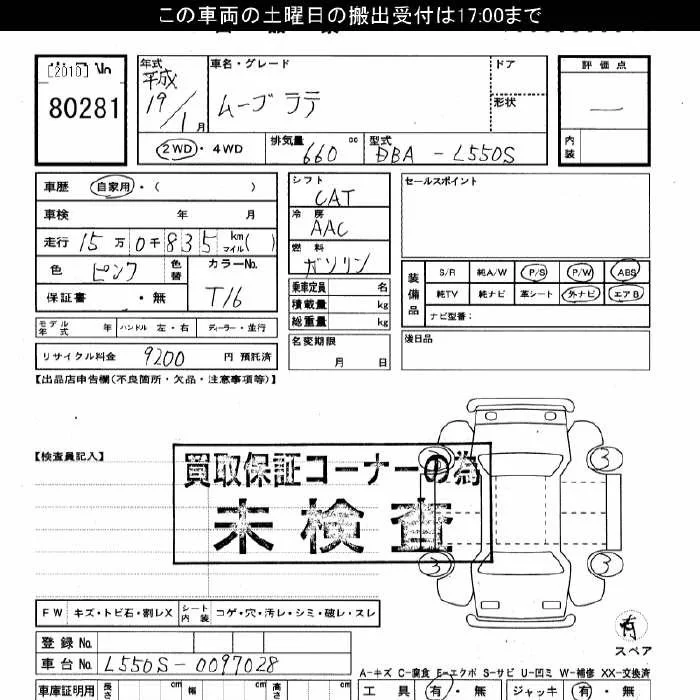 この車両の土曜日の搬出受付は17:00まで
[2010] No
80281
年式
平成
19/1月
車名・グレード
ムーヴ ラテ
ドア
形状
評価点
—
内装
2WD・4WD
排気量
660 cc
型式
DBA - L550S
車歴 自家用・( )
車検 年 月
走行 15万0千835 km マイル( )
色 ピンク 色替
カラーNo.
T16
保証書 ・無
シフト
CAT
冷房
AAC
燃料
ガソリン
乗車定員 名
積載量 kg
総重量 kg
セールスポイント
装備品
S/R 純A/W P/S P/W ABS
純TV 純ナビ 革シート 外ナビ エアB
ナビ型番:
モデル年式 年 ハンドル 左・右 ディーラー・並行
名変期限
月 日
後日品
リサイクル料金 9200 円 預託済
【出品店申告欄(不良箇所・欠品・注意事項等)】
【検査員記入】
買取保証コーナーの為
未検査
3 3
3 3
有
スペア
FW キズ・トビ石・割レX シート内装 コゲ・穴・汚レ・シミ・破レ・スレ
登録No.
車台No. L550S-0097028
A-キズ C-腐食 E-エクボ S-サビ U-凹ミ W-補修 XX-交換済
車庫証明用 長さ cm 幅 cm 高さ cm
工具 有・無 ジャッキ 有・無